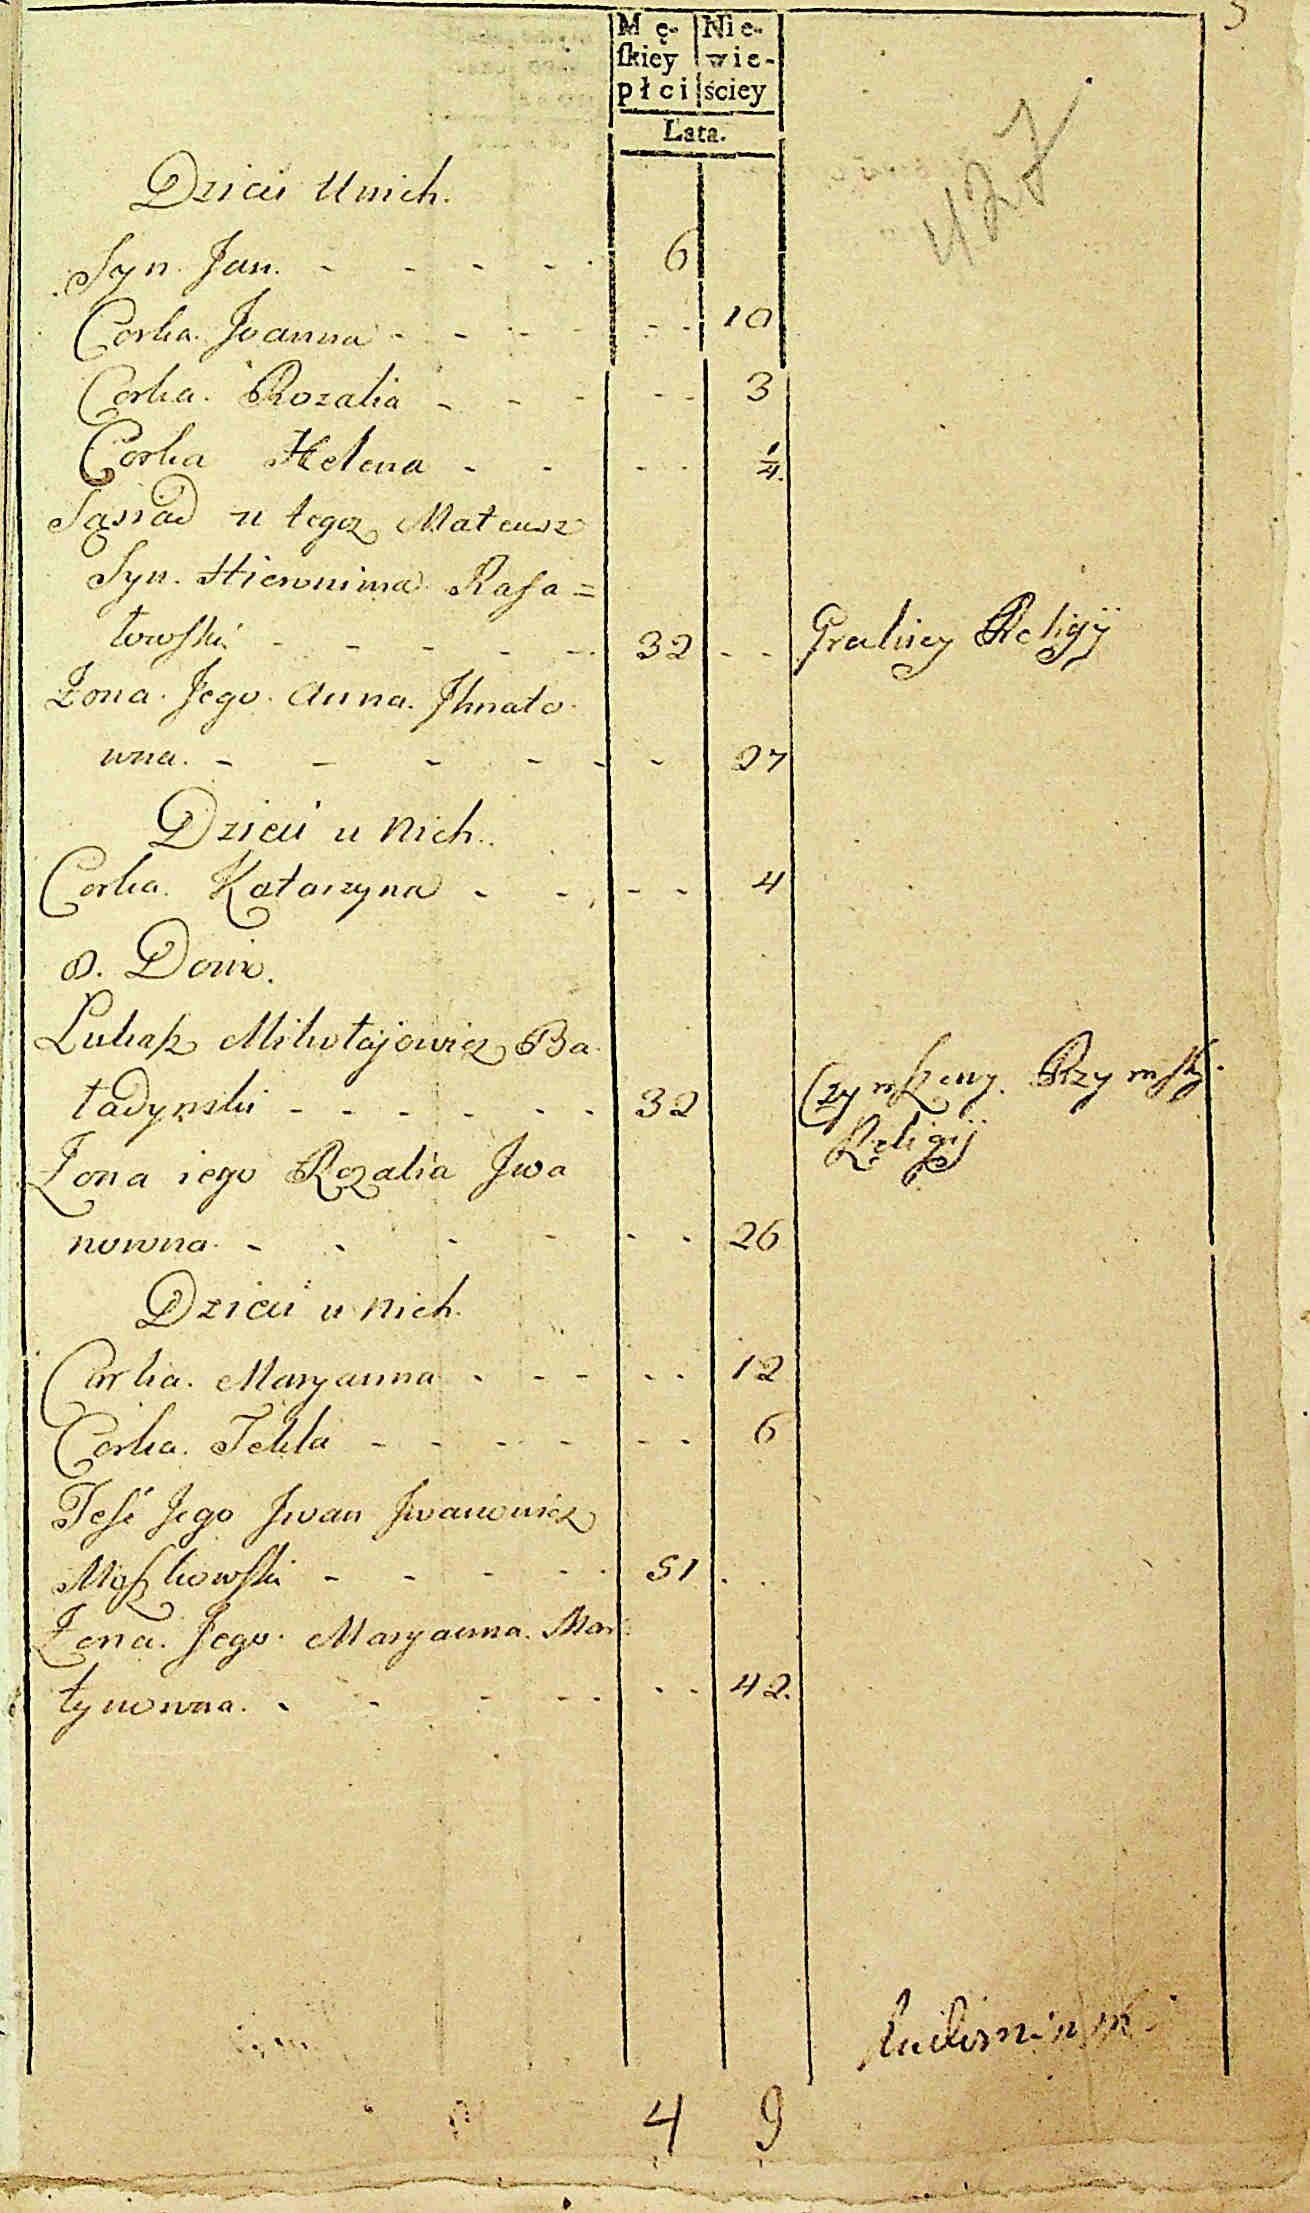 Mę- Nie-
ſkiey wie-
płci ściey
Lata.
427
Dzieci Unich.
Syn Jan. - - - - - 6
Corka. Joanna - - - - - - 10
Corka. Rozalia - - - - - 3
Corka Helena - - - - 1/4.
Sąsiad u tegoz Mateusz
Syn. Hieronima Rafa=
łowſki - - - - - 32 - - Greckiey Religÿ
Zona. Jego. Anna. Jhnato
wna. - - - - - - 27
Dzieci u Nich.
Corka. Katarzyna - - - - 4
8. Dom.
Lukaſz Mikołajowicz Ba
ładynski - - - - - - 32 Czynſzowy. Rzymſky.
Religij
Zona iego Rozalia Jwa
nowna - - - - - - 26
Dzieci u Nich.
Corka. Maryanna - - - - - 12
Corka. Tekla - - - - - - 6
Teść Jego Jwan Jwanowicz
Moſzkowſki - - - - - 51 - -
Zona. Jego. Maryanna. Mar
tynowna. - - - - - - - 42.
4 9